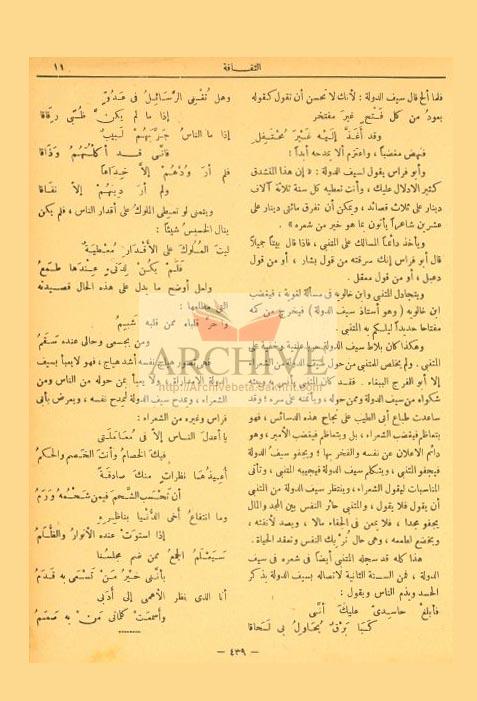 ١١
الثقافة
فلما ألح قال سيف الدولة : لأنك لا تحسن أن تقول كقوله
يعود من كل فتح غير مفتخر
وقد أغذ إليه غير محتفل
فنهض مغضباً ، واعتزم ألا يمدحه أبداً :
وأبو فراس يقول لسيف الدولة : « إن هذا المتشدق
كثير الإدلال عليك ، وأنت تعطيه كل سنة ثلاثة آلاف
دينار على ثلاث قصائد ، ويمكن أن تفرق مائتى دينار على
عشرين شاعراً يأتون بما هو خير من شعره » .
ويأخذ دائماً المسالك على المتنبى ، فاذا قال بيتاً جميلاً
قال أبو فراس إنك سرقته من قول بشار ، أو من قول
دعبل ، أو من قول معقل .
ويتجادل المتنبى وابن خالويه فى مسألة لغوية ، فيغضب
ابن خالويه ( وهو أستاذ سيف الدولة ) فيخرج من كمه
مفتاحاً حديداً ليلكم به المتنبى .
وهكذا كان بلاط سيف الدولة حرباً علنية وخفية على
المتنبى . ولم يخلص للمتنبى من حول سيف الدولة من الشعراء
إلا أبو الفرج الببغاء . فقد كان المتنبى يأنس به ويبثه
شكواه من سيف الدولة وممن حوله ، ويأتمنه على سره ؛ وقد
ساعدت طباع أبى الطيب على نجاح هذه الدسائس ، فهو
يتعاظم فيغضب الشعراء ، بل ويتعاظم فيغضب الأمير ، وهو
دائم الاعلان عن نفسه والفخر بها ؛ ويجفو سيف الدولة
فيجفو المتنبى ، ويتكلم سيف الدولة فيجيبه المتنبى ، وتأتى
المناسبات ليقول الشعراء ، وينتظر سيف الدولة من المتنبى
أن يقول فلا يقول ، والمتنبى حائر النفس بين المجد والمال
يجفو مجداً ، فلا يمعن فى الجفاء مالا ، ويصد لأنفته ،
ويخضع لطمعه ، وهى حال تربك النفس وتعقد الحياة .
هذا كله قد سجله المتنبى أيضاً فى شعره فى سيف
الدولة ، فمن السنة الثانية لاتصاله بسيف الدولة يذكر
الحسد ويذم الناس ويقول :
فأبلغ حاسدىّ عليك أنى
كبا برق يحاول بى لحاقا
وهل تُغنى الرسائل فى عدوّ
إذا ما لم يكنّ ظُبىً رقاقا
إذا ما الناس جرّبهم لبيب
فإنى قد أكلتهم وذاقا
فلم أر ودّهم إلا خداعاً
ولم أر دينهم إلا نفاقا
ويتمنى لو تعطى الملوك على أقدار الناس ، فلم يكن
ينال الخسيس شيئاً :
ليت الملوك على الأقدار معطية
فلم يكن لدنىّ عندها طمع
ولعل أوضح ما يدل على هذه الحال قصيدته
التى مطلعها :
واحر قلباه ممن قلبه شبم
ومن بجسمى وحالى عنده سقم
فهى تصور هياج نفسه أشد هياج ، فهو لا يعبأ بسيف
الدولة الامارة ، ولا يعبأ بمن حوله من الناس ومن
الشعراء ، ويمدح سيف الدولة ليمدح نفسه ، ويعرض بأبى
فراس وغيره من الشعراء :
يا أعدل الناس إلا فى معاملتى
فيك الخصام وأنت الخصم والحكم
أعيذها نظرات منك صادقة
أن تحسب الشحم فيمن شحمه ورم
وما انتفاع أخى الدنيا بناظره
إذا استوت عنده الأنوار والظلم
سيعلم الجمع ممن ضم مجلسنا
بأننى خير من تسعى به قدم
أنا الذى نظر الأعمى إلى أدبى
وأسمعت كلماتى من به صمم
ARCHIVE
http://Archivebeta.Sakhrit.com
— ٤٣٩ —